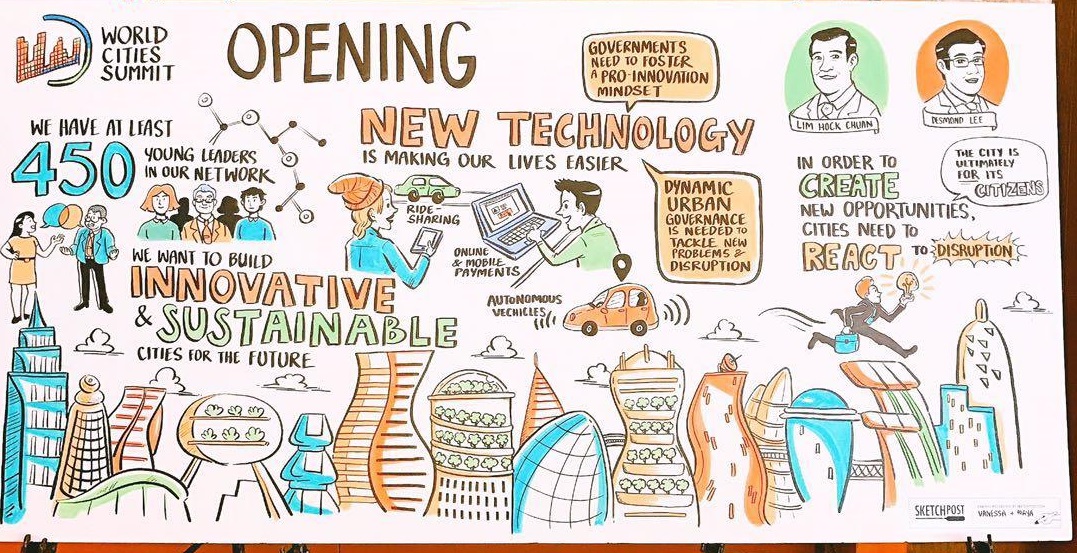 WORLD
CITIES
SUMMIT
OPENING
WE HAVE AT LEAST
450
YOUNG LEADERS
IN OUR NETWORK
WE WANT TO BUILD
INNOVATIVE
& SUSTAINABLE
CITIES FOR THE FUTURE
GOVERNMENTS
NEED TO FOSTER
A PRO-INNOVATION
MINDSET
NEW TECHNOLOGY
IS MAKING OUR LIVES EASIER
RIDE-
SHARING
ONLINE
& MOBILE
PAYMENTS
AUTONOMOUS
VECHICLES
DYNAMIC
URBAN
GOVERNANCE
IS NEEDED TO
TACKLE NEW
PROBLEMS &
DISRUPTION
LIM HOCK CHUAN
DESMOND LEE
THE CITY IS
ULTIMATELY
FOR ITS
CITIZENS
IN ORDER TO
CREATE
NEW OPPORTUNITIES,
CITIES NEED TO
REACT TO DISRUPTION
SKETCHPOST
VANESSA +